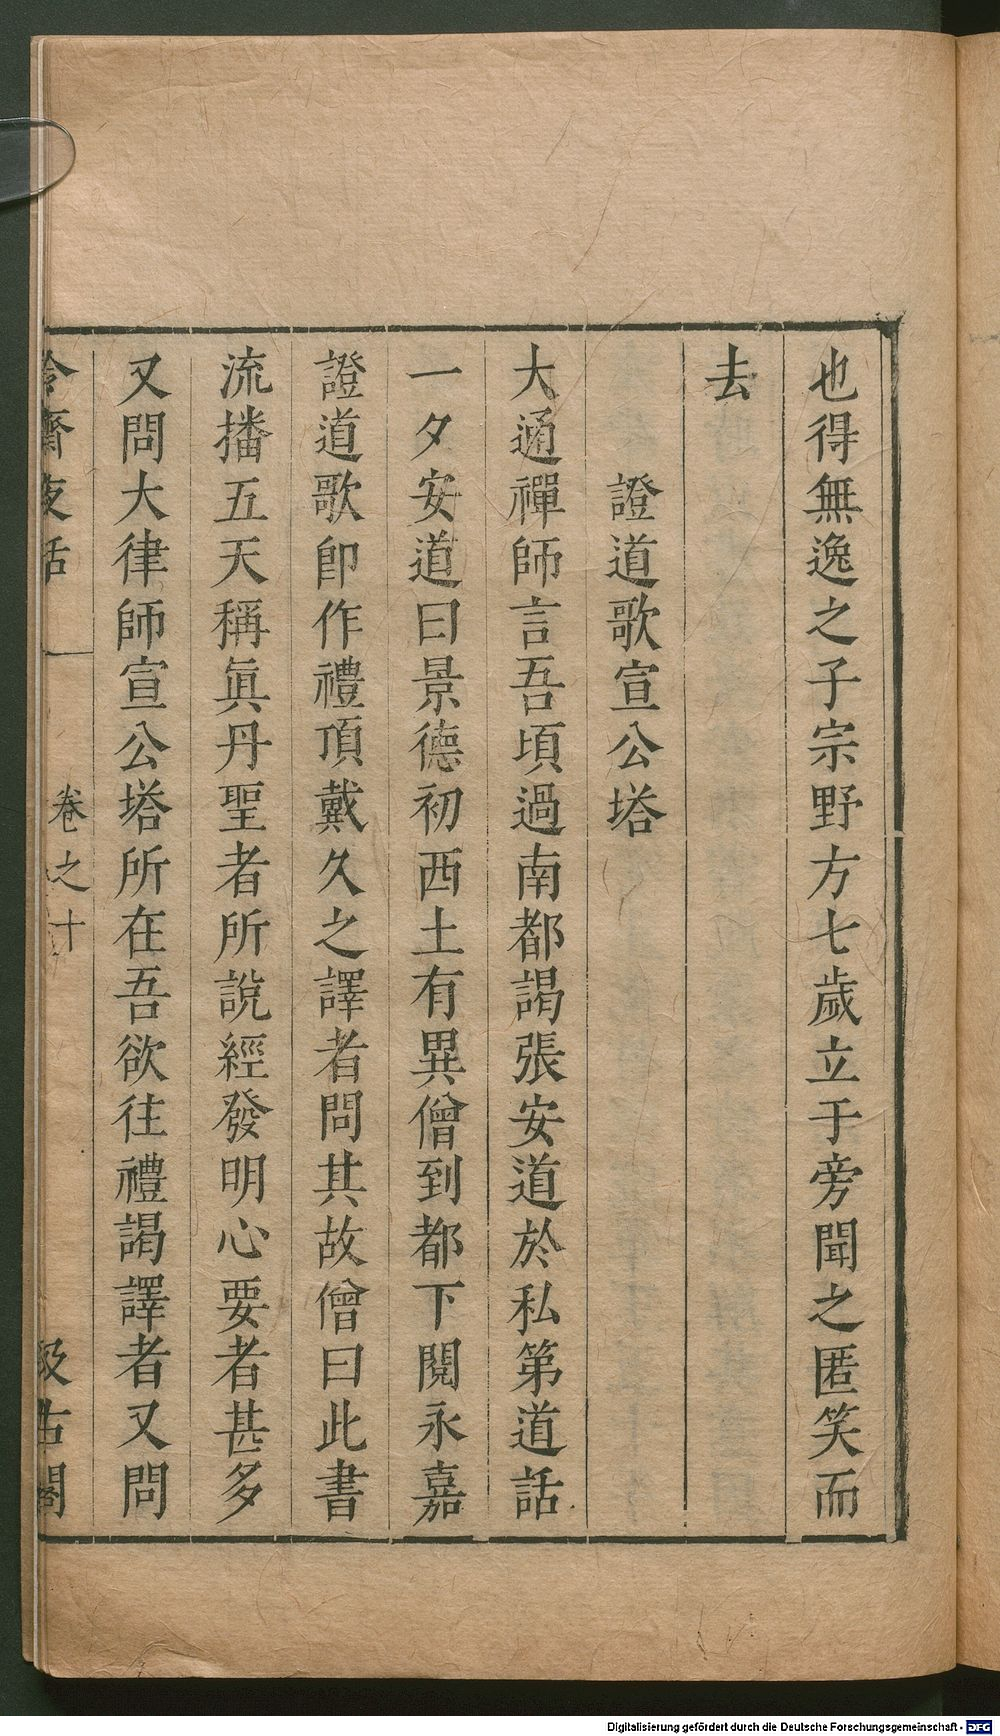 也得無逸之子宗野方七歲立于旁聞之匿笑而
去
證道歌宣公塔
大通禪師言吾頃過南都謁張安道於私第道話
一夕安道曰景德初西土有異僧到都下閱永嘉
證道歌即作禮頂戴久之譯者問其故僧曰此書
流播五天稱眞丹聖者所說經發明心要者甚多
又問大律師宣公塔所在吾欲往禮謁譯者又問
冷齋夜話 卷之十 汲古閣
Digitalisierung gefördert durch die Deutsche Forschungsgemeinschaft - DFG